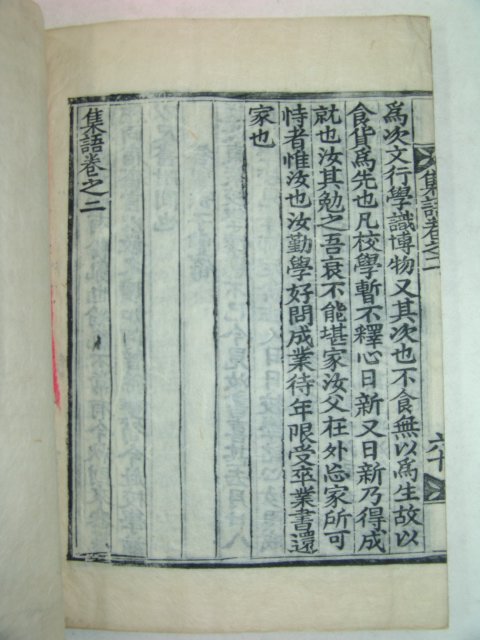 集語卷之二
六十
為次文行學識博物又其次也不食無以為生故以
食貨為先也凡校學暫不釋心日新又日新乃得成
就也汝其勉之吾衰不能堪家汝父在外忘家所可
恃者惟汝也汝勤學好問成業待年限受卒業書還
家也
集語卷之二